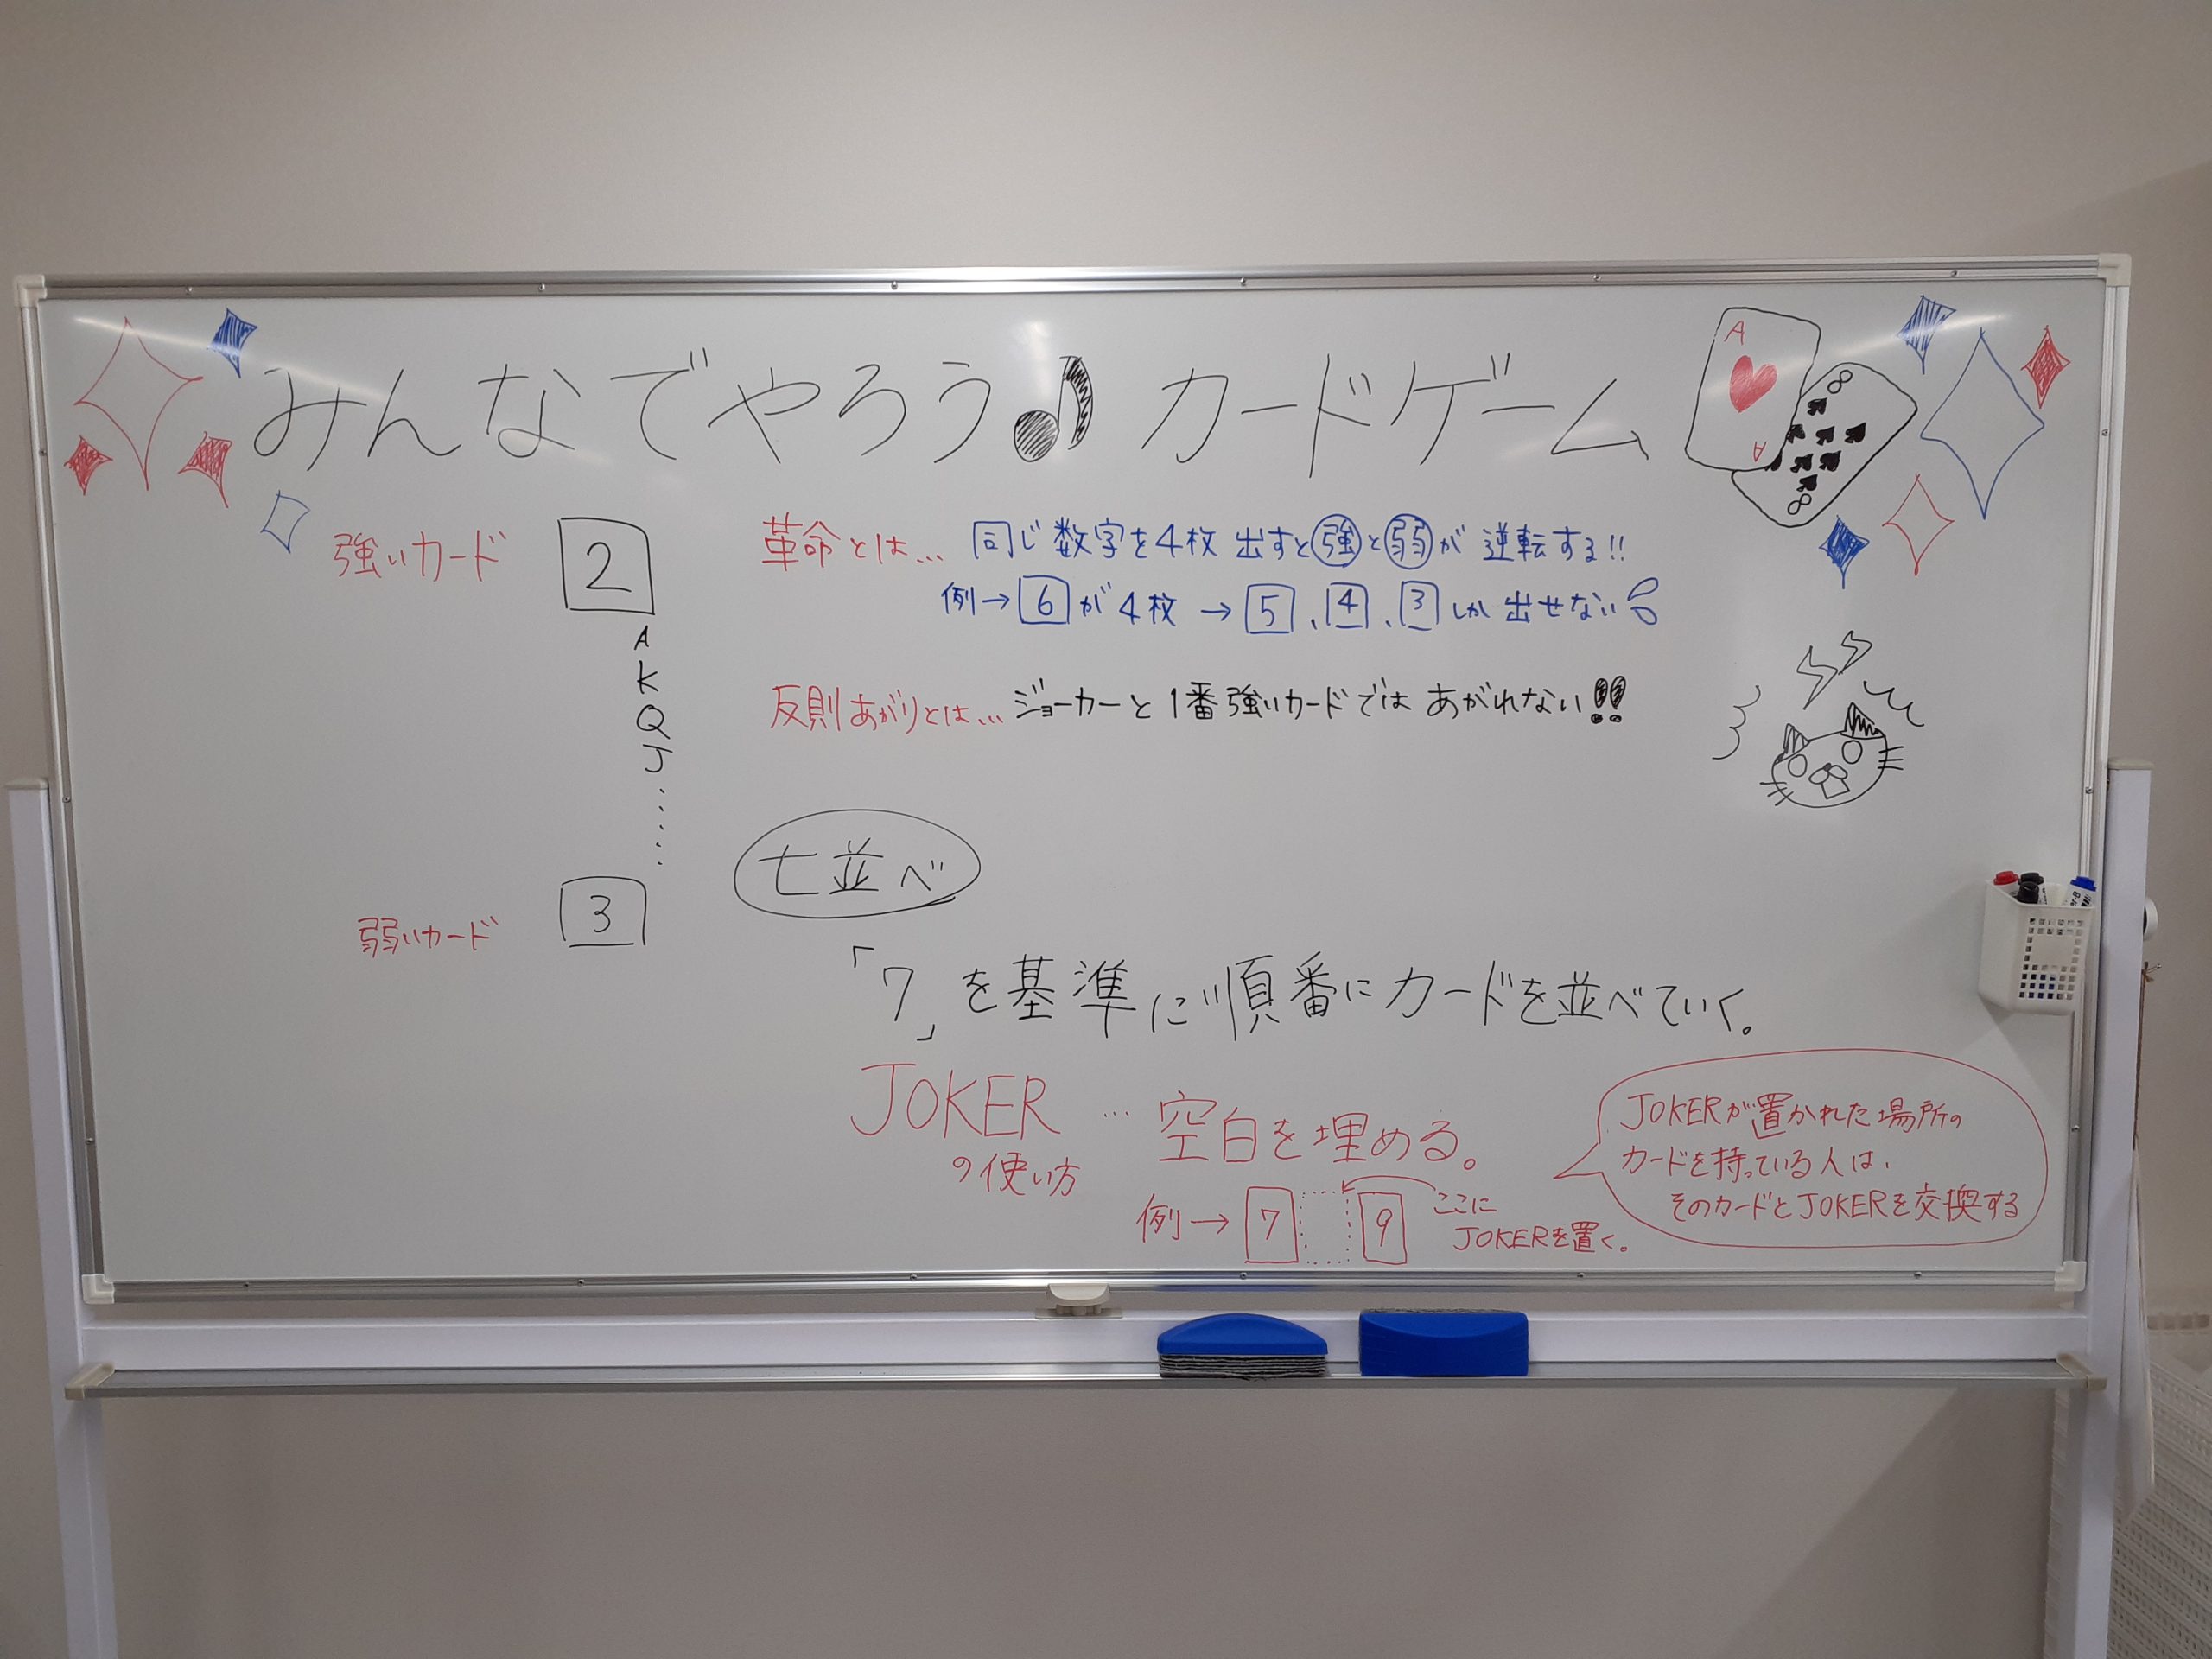 みんなでやろう♪ カードゲーム
A
A
8
8
強いカード 2
A
K
Q
J
⋮
弱いカード 3
革命とは… 同じ数字を4枚出すと強と弱が逆転する!!
例→6が4枚→5、4、3しか出せない
反則あがりとは… ジョーカーと1番強いカードではあがれない!!
七並べ
「7」を基準に順番にカードを並べていく。
JOKER … 空白を埋める。
の使い方
例→ 7 9 ここに
JOKERを置く。
JOKERが置かれた場所の
カードを持っている人は、
そのカードとJOKERを交換する